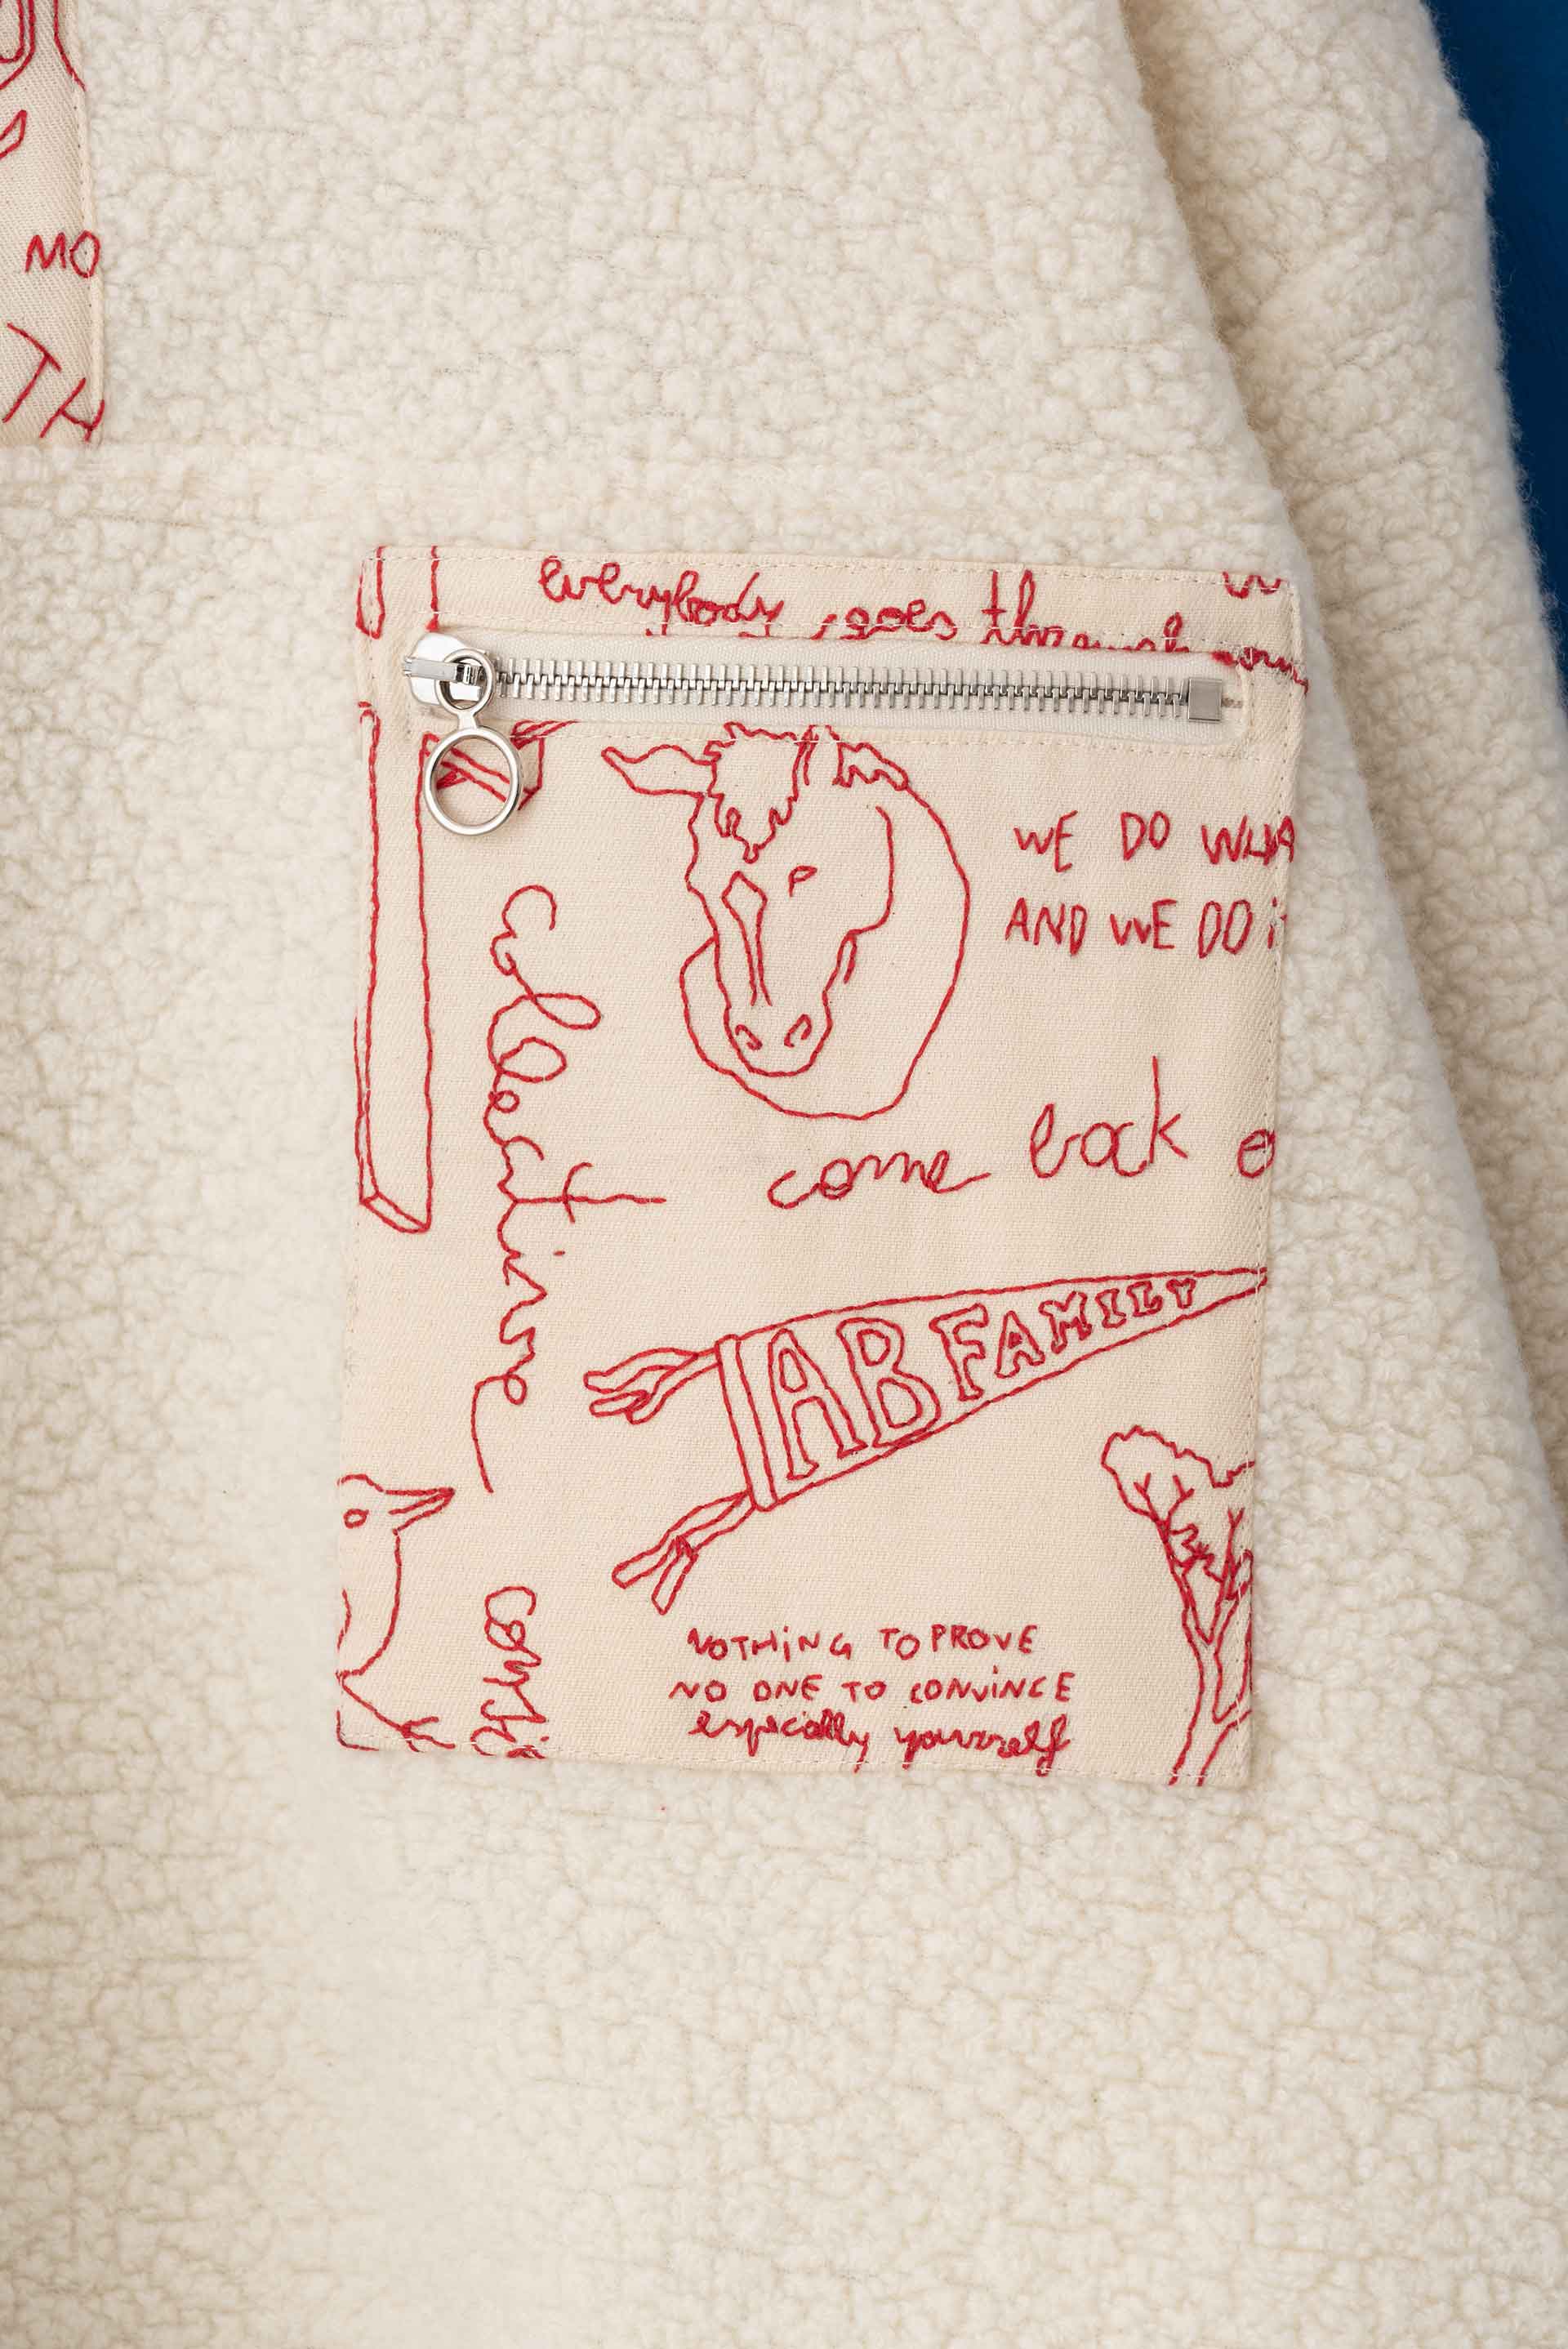 MO
TH
everybody goes through
WE DO WHA
AND WE DO it
collective
come back
AB FAMILY
NOTHING TO PROVE
NO ONE TO CONVINCE
especially yourself